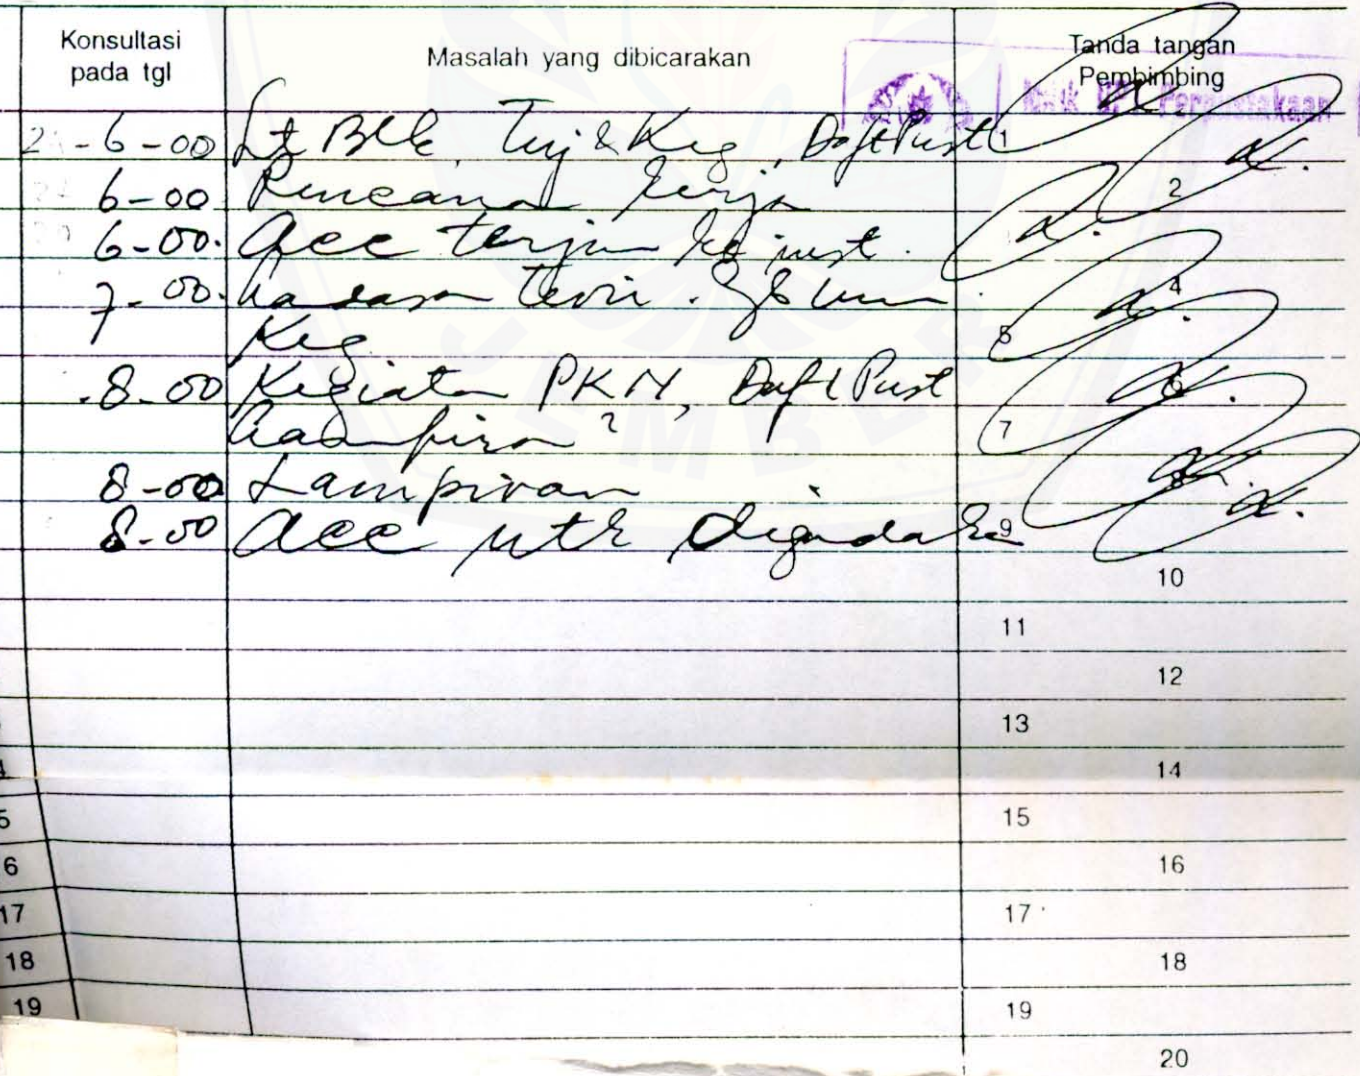 Konsultasi pada tgl Masalah yang dibicarakan Tanda tangan Pembimbing
Milik UPT Perpustakaan
-6-00 Lt Blk, Tuj & Keg, Daft Pust 1
6-00 Rencana kerja 2
6-00. acc terjun ke inst.
7-00. Landasan teori. Gb Umum 4
Keg 5
.8-00 Kegiatan PKN, Daft Pust 6
Lampiran ? 7
8-00 Lampiran 8
8-00 acc utk digandakan 9
10
11
12
13
14
5 15
6 16
17 17
18 18
19 19
20
JEMBER